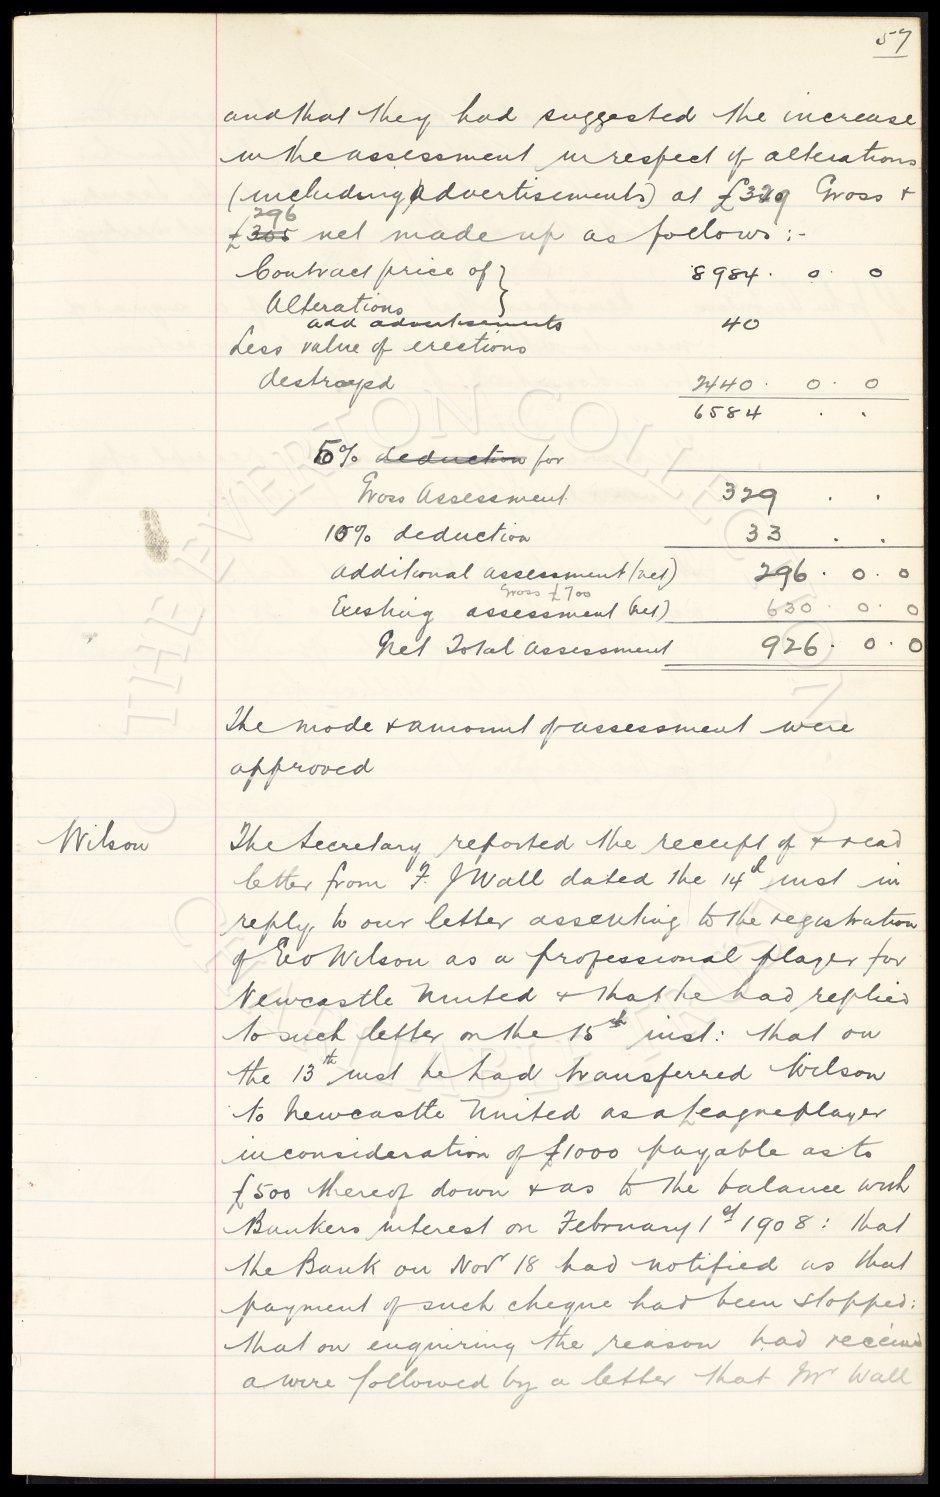 57
and that they had suggested the increase
in the assessment in respect of alterations
(including Advertisements) at £329 Gross &
296
£305 net made up as follows :-
Contract price of } 8984 . 0 . 0
Alterations
add advertisements 40
Less value of erections
destroyed 2440 . 0 . 0
6584 . .
5% deduction for
Gross Assessment 329 . .
10% deduction 33 . .
additional assessment (net) 296 . 0 . 0
Gross £700
Existing assessment (net) 630 . 0 . 0
Net Total Assessment 926 . 0 . 0
The mode & amount of assessment were
approved
Wilson
The Secretary reported the receipt of & read
letter from F. J Wall dated the 14th inst in
reply to our letter assenting to the registration
of Geo Wilson as a professional player for
Newcastle United & that he had replied
to such letter on the 15th inst: that on
the 13th inst he had transferred Wilson
to Newcastle United as a League player
in consideration of £1000 payable as to
£500 thereof down & as to the balance with
Bankers interest on February 1st 1908 : that
the Bank on Novr 18 had notified us that
payment of such cheque had been stopped:
that on enquiring the reason had received
a wire followed by a letter that Mr Wall
THE EVERTON COLLECTION
CHARITABLE TRUST